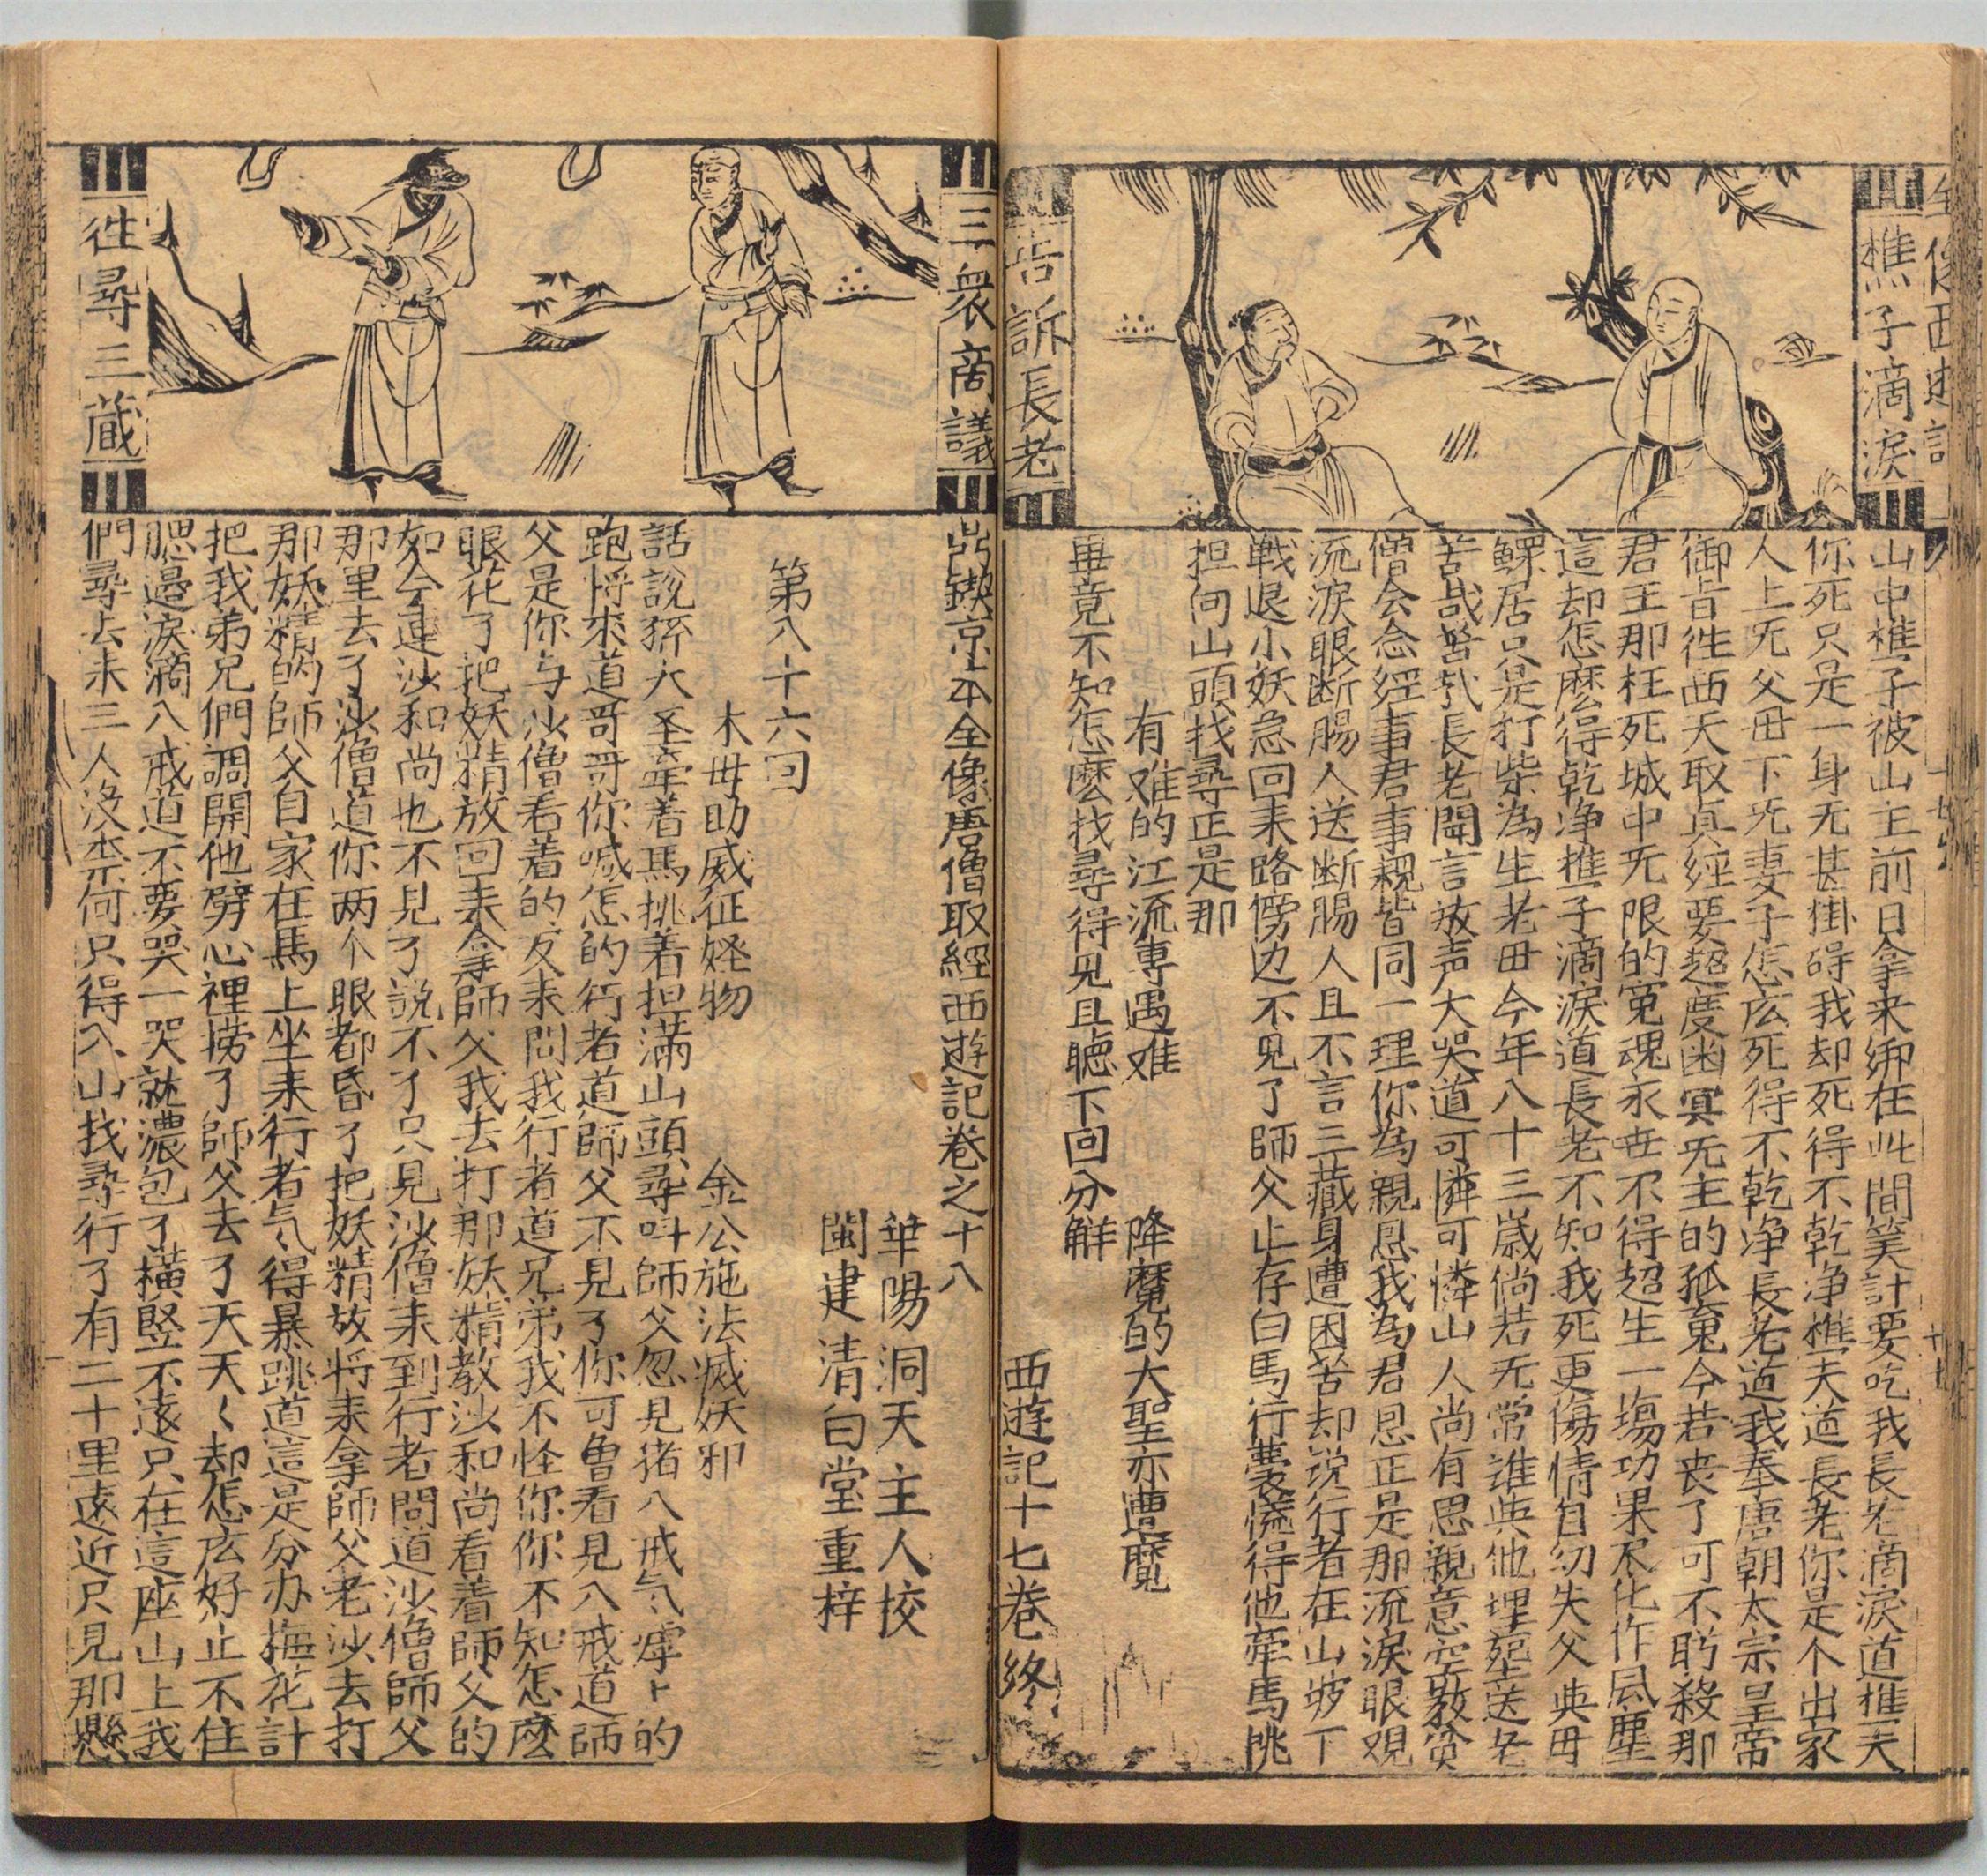 全像西遊記
樵子滴淚
告訴長老
山中樵子被山主前日拿来綁在此間筭計要吃我長老滴淚道樵夫
你死只是一身无甚掛碍我却死得不乾净樵夫道長老你是个出家
人上无父母下无妻子怎広死得不乾净長老道我奉唐朝太宗皇帝
御旨徃西天取真經要超度幽冥无主的孤䰟今若丧了可不盻殺那
君王那枉死城中无限的冤魂永世不得超生一塲功果尽化作風塵
這却怎麽得乾净樵子滴淚道長老不知我死更傷情自幼失父與母
鰥居只是打柴為生老母今年八十三歲倘若无常誰與他埋塟送老
苦哉苦哉長老聞言放声大哭道可憐可憐山人尚有思親意空敎貧
僧会念經事君事親皆同一理你為親恩我為君恩正是那流淚眼观
流淚眼断腸人送断腸人且不言三藏身遭困苦却说行者在山坡下
戰退小妖急回来路傍边不見了師父止存白馬行囊慌得他牽馬挑
担向山頭找尋正是那
有难的江流專遇难　降魔的大聖亦遭魔
畢竟不知怎麽找尋得見且聽下回分觧
西遊記十七卷終
三衆商議
徃尋三藏
出鐭京本全像唐僧取經西遊記卷之十八
華陽洞天主人校
閩建清白堂重梓
第八十六回
木母助威征怪物　金公施法滅妖邪
話說孫大圣牽着馬挑着担滿山頭尋呌師父忽見猪八戒气㖸卜的
跑将來道哥哥你喊怎的行者道師父不見了你可曾看見八戒道師
父是你与沙僧看着的反来問我行者道兄弟我不怪你你不知怎麽
眼花了把妖精放回来拿師父我去打那妖精教沙和尚看着師父的
如今連沙和尚也不見了說不了只見沙僧来到行者問道沙僧師父
那里去了沙僧道你两个眼都昏了把妖精放将来拿師父老沙去打
那妖精的師父自家在馬上坐来行者气得暴跳道這是分办梅花計
把我弟兄們調開他劈心裡捞了師父去了天天く却怎広好止不住
腮邉淚滴八戒道不要哭一哭就濃包了橫竪不遠只在這座山上我
們尋去来三人沒柰何只得入山找尋行了有二十里遠近只見那懸